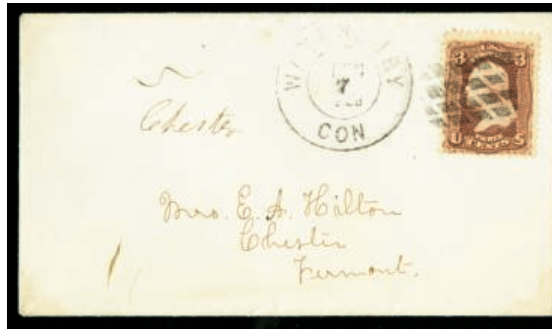 7
CON
3 3
U S
CENTS
Chester
Mrs. E. A. Hilton
Chester
Vermont.